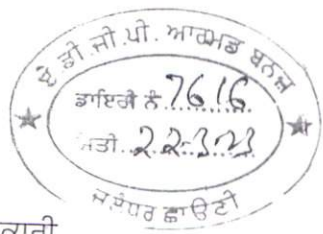 ਏ.ਡੀ.ਜੀ.ਪੀ. ਆਰਮਡ ਬਨਜ਼
ਡਾਇਰੀ ਨੰ. 7616
ਮਿਤੀ..22.3.23
ਜਲੰਧਰ ਛਾਉਣੀ